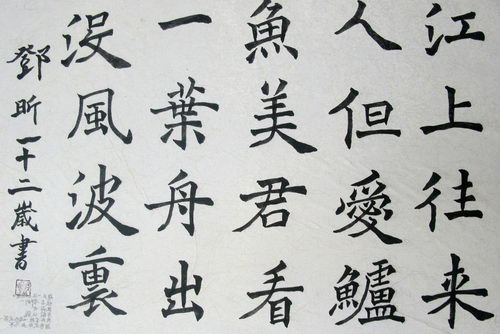 江上往来
人但愛鱸
魚美君看
一葉舟出
沒風波裏
鄧昕一十二歲書